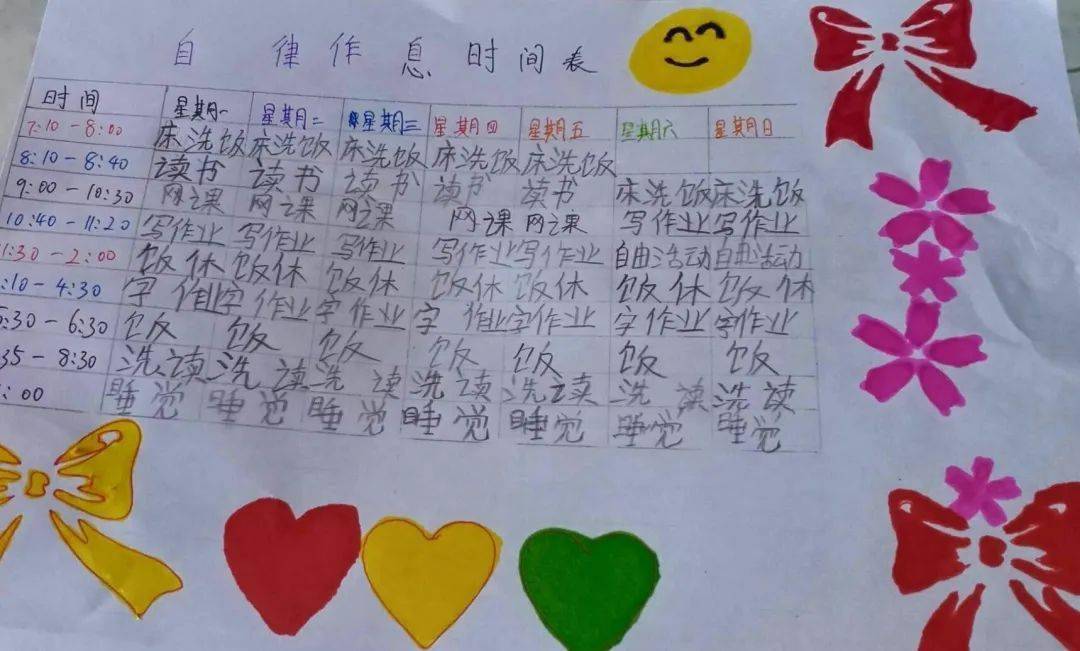 自律作息时间表
时间 星期一 星期二 星期三 星期四 星期五 星期六 星期日
7:10-8:00 床洗饭 床洗饭 床洗饭 床洗饭 床洗饭
8:10-8:40 读书 读书 读书 读书 读书
9:00-10:30 网课 网课 网课 网课 网课 床洗饭 床洗饭
10:40-11:20 写作业 写作业 写作业 写作业 写作业 写作业 写作业
1:30-2:00 饭休 饭休 饭休 饭休 饭休 自由活动 自由活动
:10-4:30 字作业 字作业 字作业 字作业 字作业 饭休 饭休
:30-6:30 饭 饭 饭 饭 饭 字作业 字作业
35-8:30 洗读 洗读 洗读 洗读 洗读 饭 饭
:00 睡觉 睡觉 睡觉 睡觉 睡觉 洗读 洗读
睡觉 睡觉